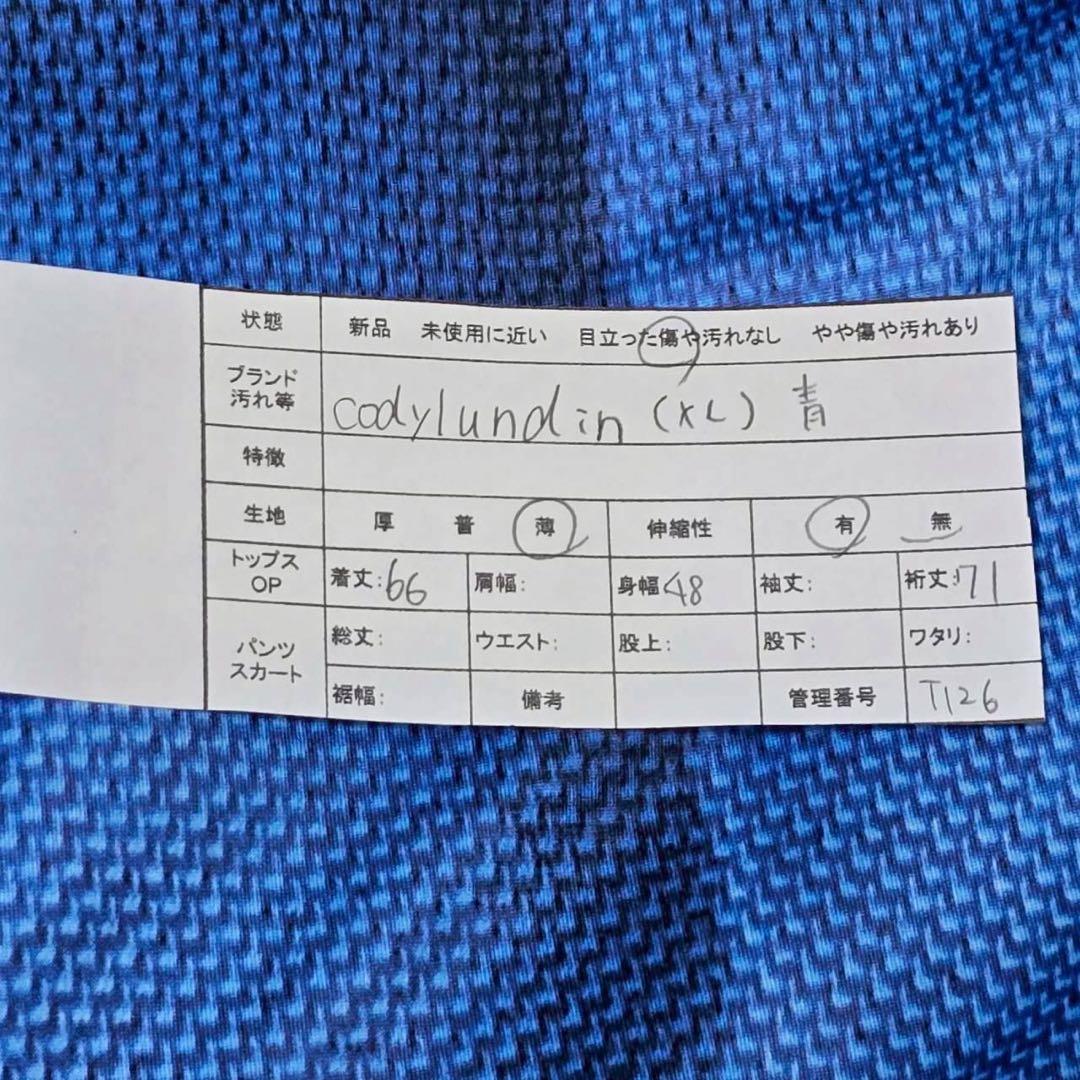 状態 新品 未使用に近い 目立った傷や汚れなし やや傷や汚れあり
ブランド
汚れ等
codylundin (XL) 青
特徴
生地 厚 普 薄 伸縮性 有 無
トップス
OP
着丈:66 肩幅: 身幅48 袖丈: 裄丈:71
パンツ
スカート
総丈: ウエスト: 股上: 股下: ワタリ:
裾幅: 備考 管理番号 T126